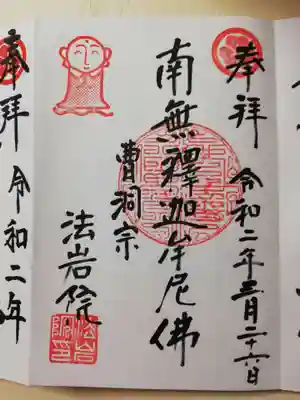 奉拝 令和二年三月二十六日
南無釋迦牟尼佛
曹洞宗
法岩院
法岩院印
奉拝 令和二年